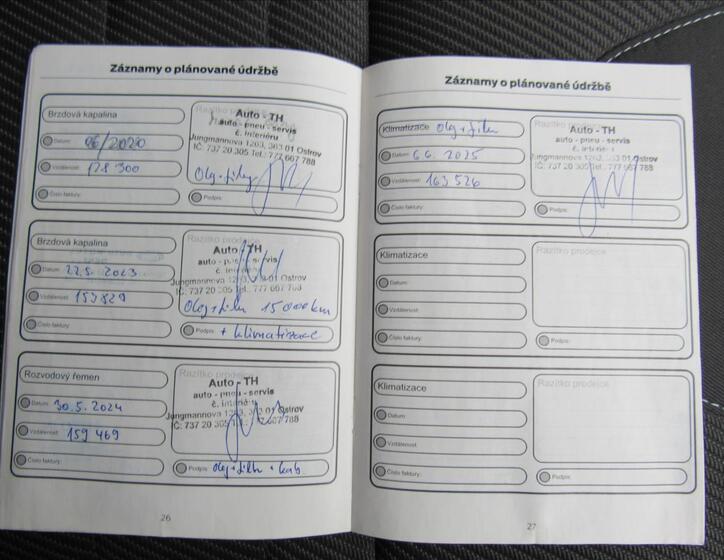 Záznamy o plánované údržbě
Brzdová kapalina
Datum: 06/2020
Vzdálenost: 128 300
Číslo faktury:
Razítko prodejce
Auto - TH
auto - pneu - servis
Jungmannova 1203, 363 01 Ostrov
IČ: 737 20 305 Tel.: 777 667 788
Olej + filtry
Podpis:
Brzdová kapalina
Datum: 22.5. 2023
Vzdálenost: 153829
Číslo faktury:
Razítko prodejce
Auto - TH
auto - pneu - servis
Jungmannova 1203, 363 01 Ostrov
IČ: 737 20 305 Tel.: 777 667 788
Olej + filtr 15 000 km
Podpis: + klimatizace
Rozvodový řemen
Datum: 30.5.2024
Vzdálenost: 159 469
Číslo faktury:
Razítko prodejce
Auto - TH
auto - pneu - servis
Jungmannova 1203, 363 01 Ostrov
IČ: 737 20 305 Tel.: 777 667 788
Podpis: olej + filtr + kab.
26
Záznamy o plánované údržbě
Klimatizace Olej + filtr
Datum: 6.6. 2025
Vzdálenost: 163 526
Číslo faktury:
Razítko prodejce
Auto - TH
auto - pneu - servis
Jungmannova 1203, 363 01 Ostrov
IČ: 737 20 305 Tel.: 777 667 788
Podpis:
Klimatizace
Datum:
Vzdálenost:
Číslo faktury:
Razítko prodejce
Podpis:
Klimatizace
Datum:
Vzdálenost:
Číslo faktury:
Razítko prodejce
Podpis:
27